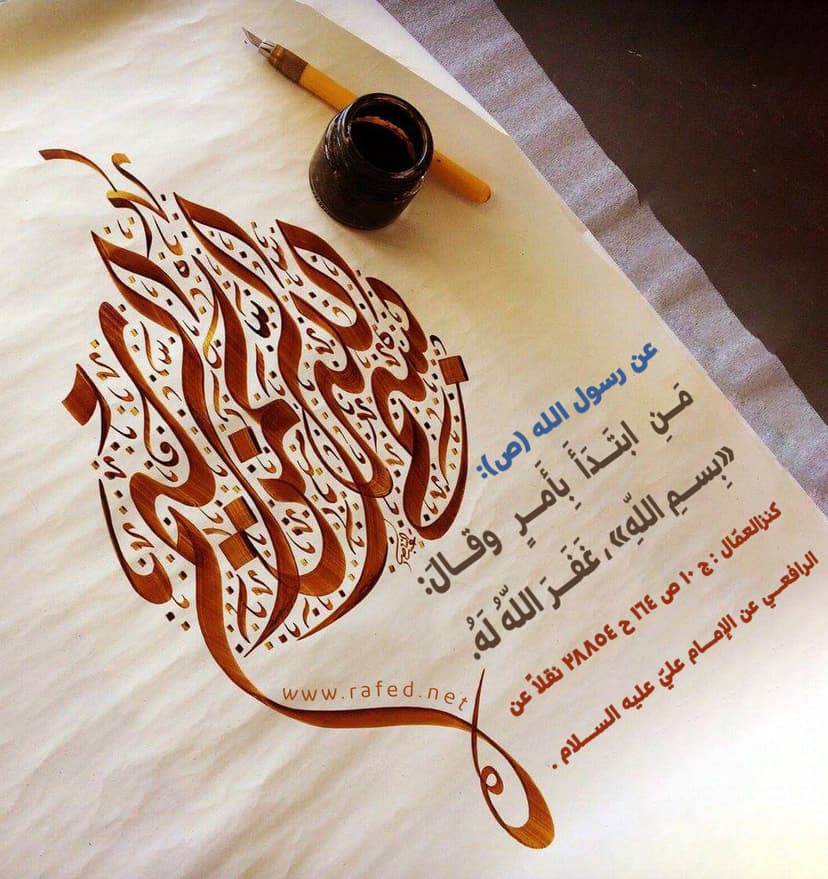 بسم الله الرحمن الرحيم
عن رسول الله (ص):
مَنِ ابتَدَأَ بِأَمرٍ وقالَ:
«بِسمِ اللّٰهِ»، غَفَرَ اللّٰهُ لَهُ.
كنزالعمّال : ج ١٠ ص ١٦٤ ح ٢٨٨٥٤ نقلاً عن
الرافعي عن الإمام عليّ عليه السلام .
www.rafed.net